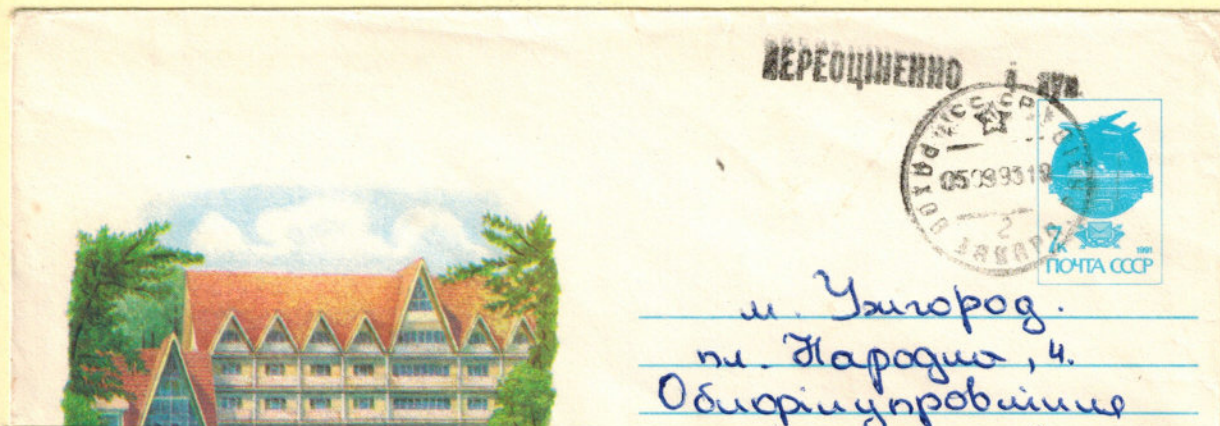 ПЕРЕОЦІНЕННО
СССР
05 09 93 19
2
7к
1991
ПОЧТА СССР
м. Ужгород.
пл. Народна, 4.
Облфінупровління